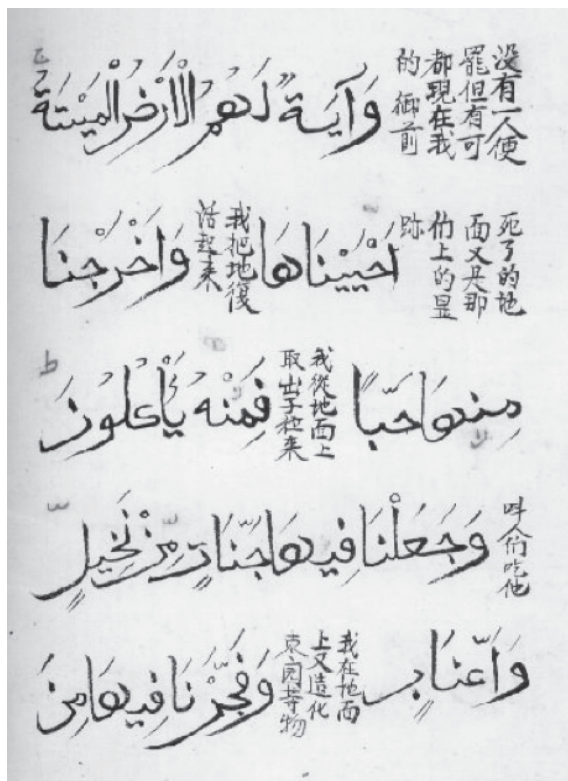 没有一人便
罷但有可
都現在我
的御前
وَآيَةٌ لَهُمُ الْأَرْضُ الْمَيْتَةُ
死了的地
面又是那
們上的显
跡
اَحْيَيْنَاهَا
我把地復
活起来
وَاَخْرَجْنَا
مِنْهَا حَبًّا
我從地面上
取出子粒来
فَمِنْهُ يَأْكُلُونَ
吃他
وَجَعَلْنَا فِيهَا جَنَّاتٍ مِنْ نَخِيلٍ
وَاَعْنَابٍ
我在地面
上又造化
园等物
وَفَجَّرْنَا فِيهَا مِنَ